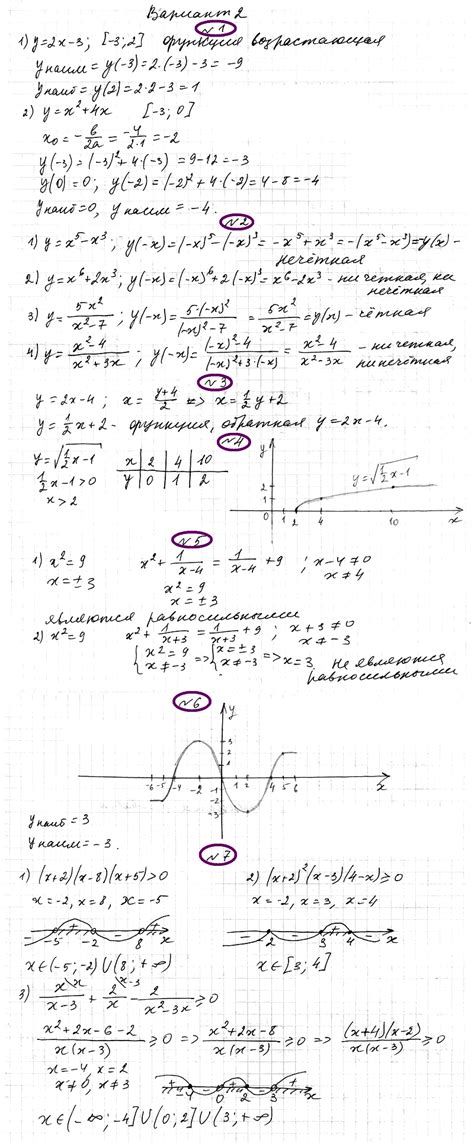 Вариант 2
№1
1) y=2x-3; [-3;2] функция возрастающая
yнаим = y(-3)=2·(-3)-3=-9
yнаиб = y(2)=2·2-3=1
2) y=x²+4x [-3; 0]
x₀=-b/2a=-4/2·1=-2
y(-3)=(-3)²+4·(-3)=9-12=-3
y(0)=0; y(-2)=(-2)²+4·(-2)=4-8=-4
yнаиб=0, yнаим=-4.
№2
1) y=x⁵-x³; y(-x)=(-x)⁵-(-x)³=-x⁵+x³=-(x⁵-x³)=-y(x)-
нечётная
2) y=x⁶+2x³; y(-x)=(-x)⁶+2(-x)³=x⁶-2x³-ни четная, ни
нечётная
3) y=5x²/x²-7; y(-x)=5·(-x)²/(-x)²-7=5x²/x²-7=y(x)-чётная
4) y=x²-4/x²+3x; y(-x)=(-x)²-4/(-x)²+3·(-x)=x²-4/x²-3x - ни четная,
ни нечётная
№3
y=2x-4; x=y+4/2 <=> x=1/2y+2
y=1/2x+2-функция, обратная y=2x-4.
№4
y=√1/2x-1
1/2x-1>0
x>2
x 2 4 10
y 0 1 2
y
y=√1/2x-1
2
1
0 1 2 4 10 x
№5
1) x²=9 x²+1/x-4=1/x-4+9; x-4≠0
x=±3 x²=9 x≠4
x=±3
являются равносильными
2) x²=9 x²+1/x+3=1/x+3+9; x+3≠0
x≠-3
{x²=9 x≠-3 => {x=±3 x≠-3 => x=3 не являются
равносильными
№6
y
3
2
1
-6 -5 -4 -2 0 1 2 4 5 6 x
-1
-2
-3
yнаиб=3
yнаим=-3.
№7
1) (x+2)(x-8)(x+5)>0
x=-2, x=8, x=-5
-5 -2 8 x
x∈(-5;-2)∪(8;+∞)
2) (x+2)²(x-3)(4-x)≥0
x=-2, x=3, x=4
2 3 4 x
x∈[3;4]
3) x/x-3+2/x-2/x²-3x≥0
x²+2x-6-2/x(x-3)≥0 => x²+2x-8/x(x-3)≥0 => (x+4)(x-2)/x(x-3)≥0
x=-4, x=2
x≠0, x≠3
-4 0 2 3 x
x∈(-∞;-4]∪(0;2]∪(3;+∞)